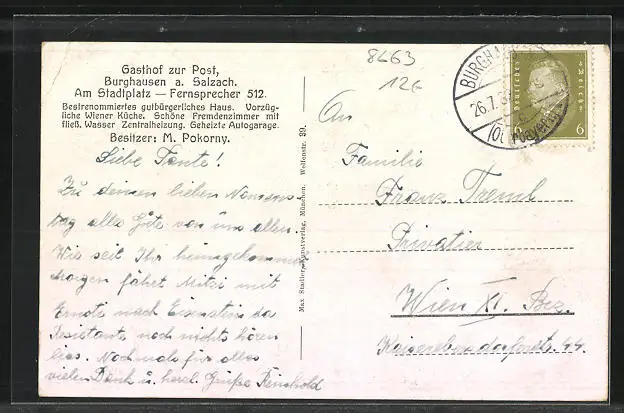 Gasthof zur Post,
Burghausen a. Salzach.
Am Stadtplatz — Fernsprecher 512.
Bestrenommiertes gutbürgerliches Haus. Vorzüg-
liche Wiener Küche. Schöne Fremdenzimmer mit
fließ. Wasser Zentralheizung. Geheizte Autogarage.
Besitzer: M. Pokorny.
Liebe Tante!
Zu deinem lieben Namens-
tag alles Gute von uns allen.
Wie seit Ihr heimgekommen
Morgen fährt Mitzi mit
nach Eisenstein da
noch nichts hören
lies. Nochmals für alles
vielen Dank u. herzl. Grüße Reinhold
Max Stadler, Kunstverlag, München, Welfenstr. 39.
8463
12€
BURGHAUSEN
26.7.
(Oberbayern)
Deutsches Reich
6
An
Familie
Franz Treml
Privatier
Wien XI. Bez.
Kaiserebersdorferstr. 44.